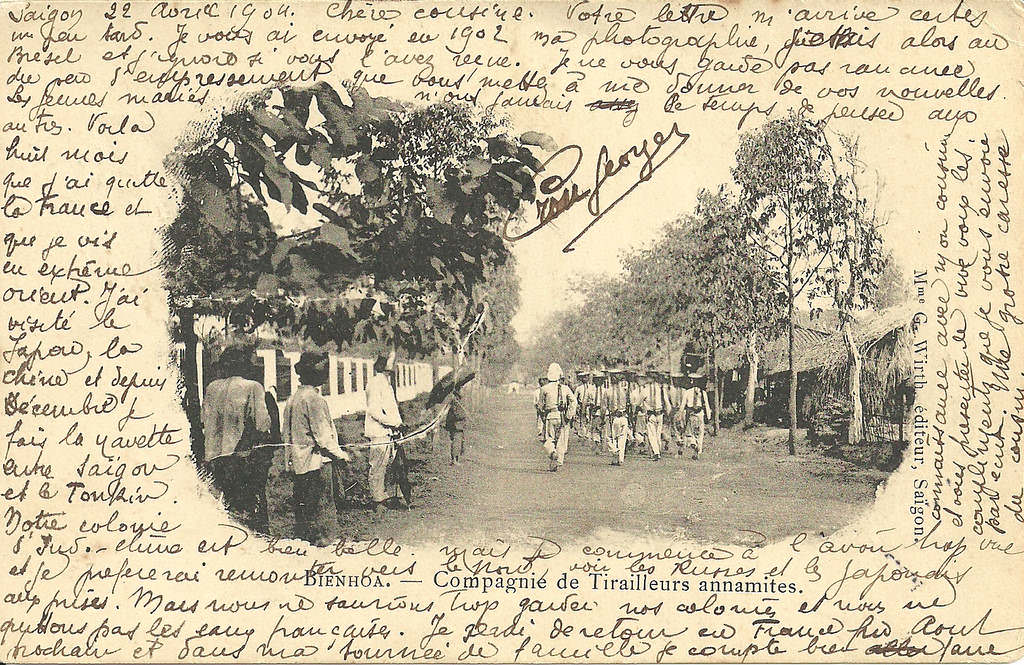 Saigon 22 Avril 1904. Chère cousine. Votre lettre m'arrive certes
un peu tard. Je vous ai envoyé en 1902 ma photographie, j'étais alors au
Brésil et j'ignore si vous l'avez reçue. Je ne vous garde pas rancune
du peu d'empressement que vous mettez à me donner de vos nouvelles.
Les jeunes mariés n'ont jamais le temps de penser aux
autres. Voilà
huit mois
que j'ai quitté
la France et
que je vis
en extrême
orient. J'ai
visité le
Japon, la
chine et depuis
Décembre je
fais la navette
entre Saïgon
et le Tonkin.
Notre colonie
d'Indo-chine est bien belle. mais je commence à l'avoir trop vue
et je préfèrerai remonter vers le Nord, voir les Russes et les Japonais
aux prises. Mais nous ne saurions trop garder nos colonies et nous ne
quittons pas les eaux françaises. Je serai de retour en France fin Aout
prochain et dans ma tournée de famille je compte bien faire
connaissance avec mon cousin
dois présenter de vive voix les
compliments que je vous envoie
par écrit. Une grosse caresse
du cousin
Georges
Mme G. Wirth, éditeur, Saigon.
BIENHOA. — Compagnie de Tirailleurs annamites.